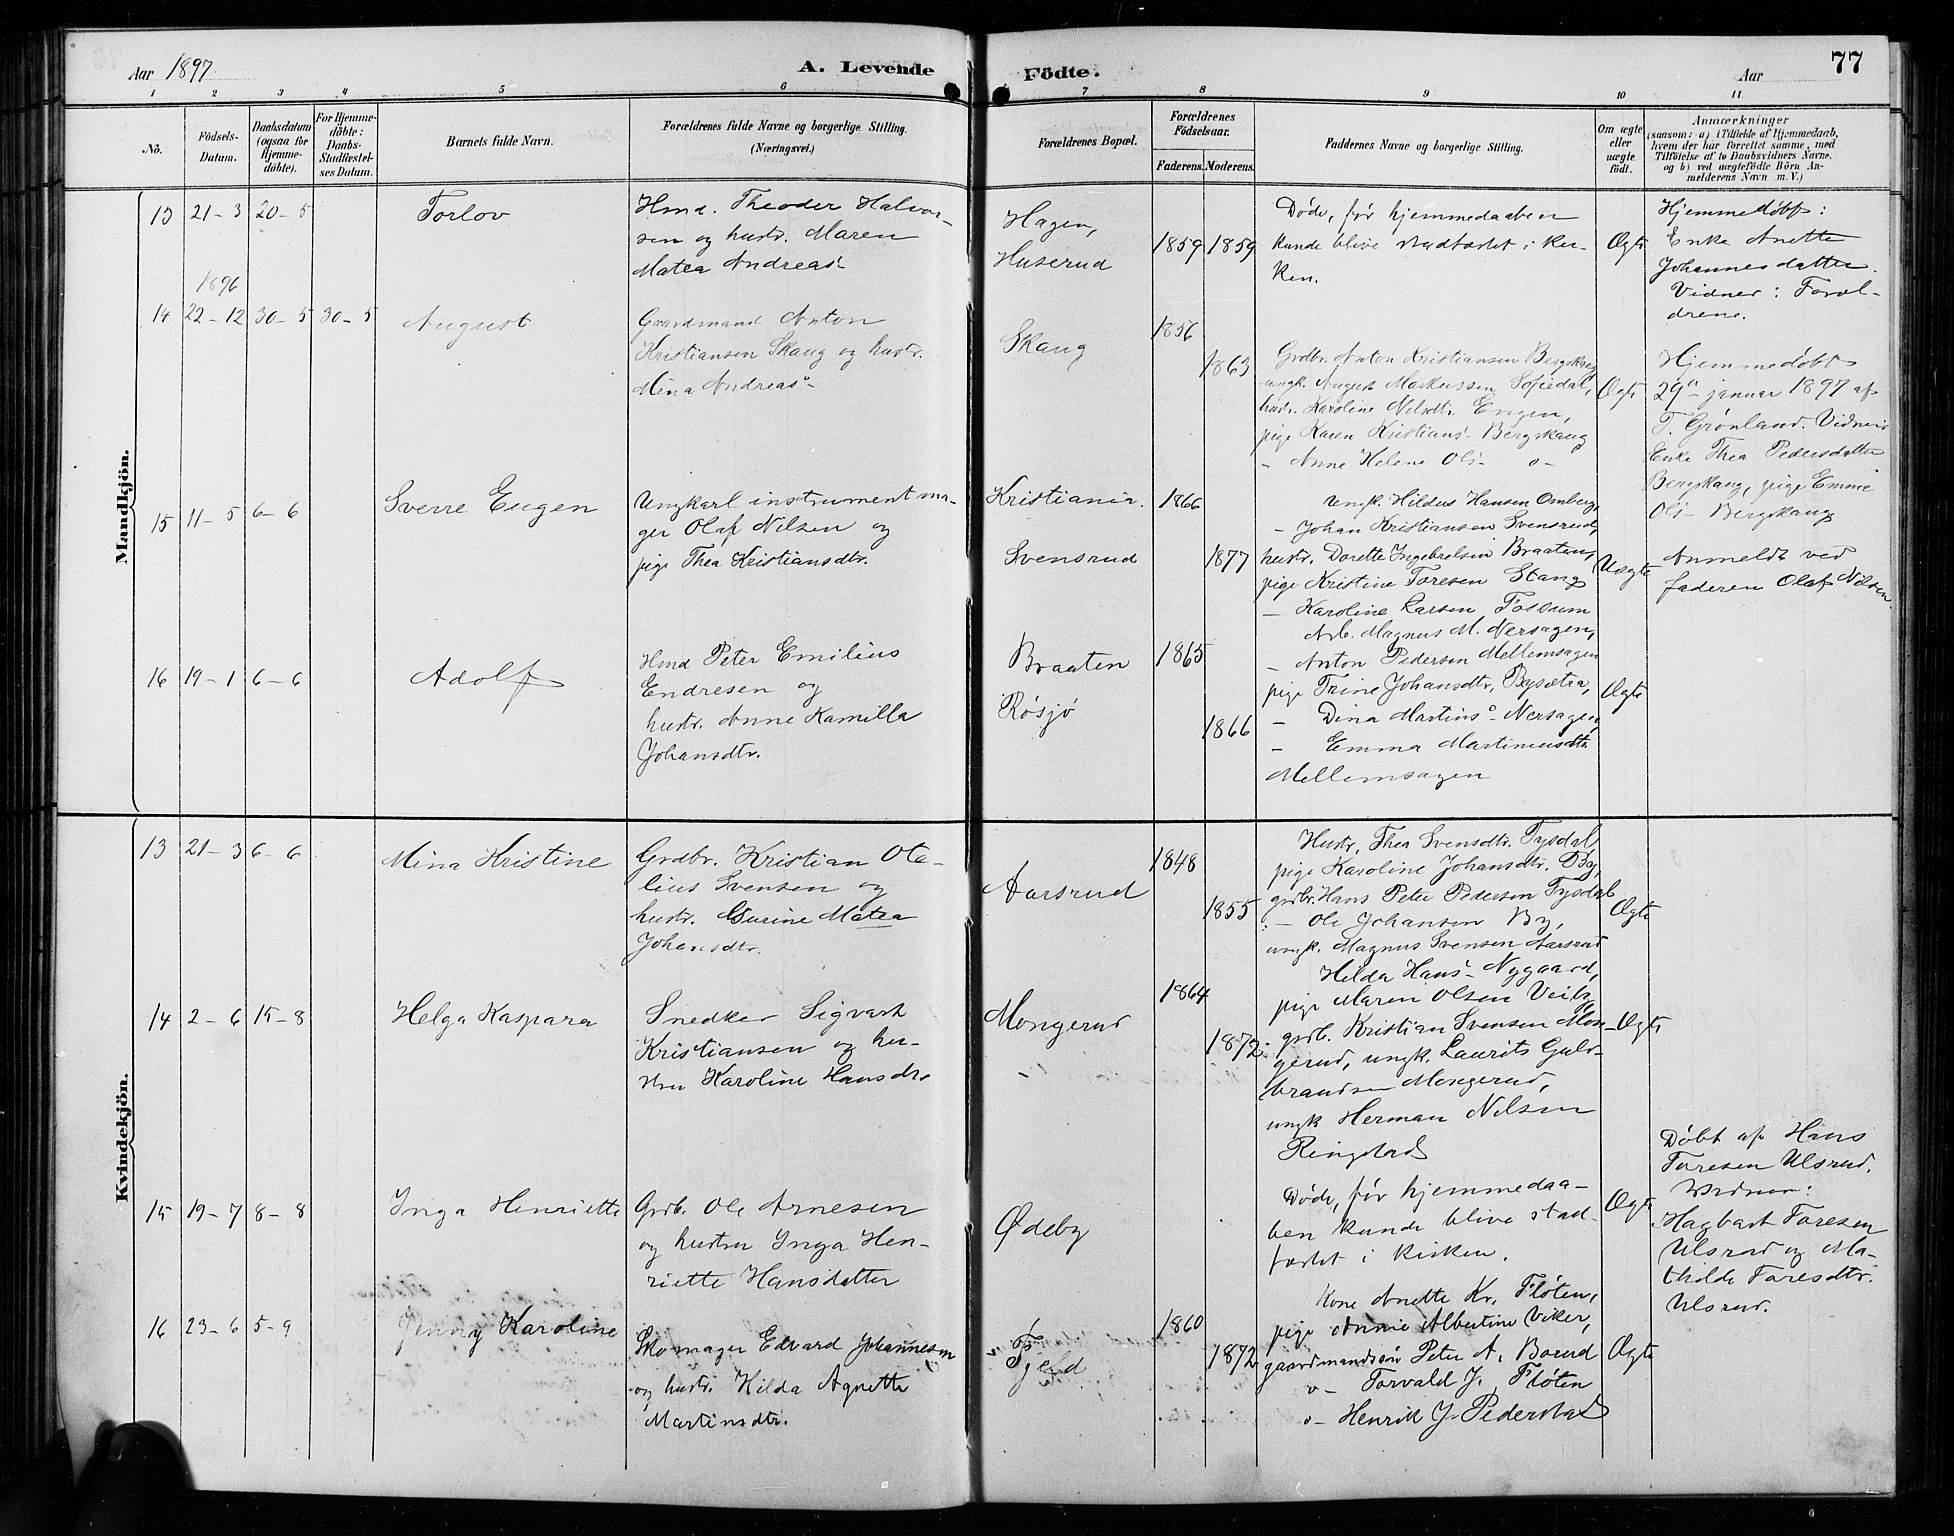 Aar 1897
A. Levende Födte.
Aar
77
1 2 3 4 5 6 7 8 9 10 11
No.
Födsels-Datum.
Daabsdatum (ogsaa för Hjemme-döbte).
For Hjemme-döbte: Daabs-Stadfæstel-ses Datum.
Barnets fulde Navn.
Forældrenes fulde Navne og borgerlige Stilling. (Næringsvei.)
Forældrenes Bopæl.
Forældrenes Födselsaar.
Faderens. Moderens.
Faddernes Navne og borgerlige Stilling.
Om ægte eller uægte födt.
Anmærkninger
(saasom: a) i Tilfælde af Hjemmedaab,
hvem der har forrettet samme, med
Tilföielse af to Daabsvidners Navne.
og b) ved uægtefödte Börn An-
melderens Navn m. V.)
Mandkjön.
13 21-3 20-5
Torlov
Hmd. Theodor Halvor-
sen og hustr. Maren
Matea Andreas'-
Hagen,
Huserud
1859 1859
Døde, før hjemmedaaben
kunde blive stadfæstet i kir-
ken.
Ægte
Hjemmedøbt:
Enke Anette
Johannesdatter.
Vidner: Foræl-
drene.
1896
14 22-12 30-5 30-5
August
Gaardmand Anton
Kristiansen Skaug og hustr.
Mina Andreas-
Skaug
1856
1863
Grdbr. Anton Kristiansen Bergskaug
ungk. August Markussen Sofiedal,
hustr. Karoline Nilsdtr. Engen,
pige Karen Kristians- Bergskaug
- Anne Helene Ols- o-
Ægte
Hjemmedøbt
29de januar 1897 af
T. Grønland. Vidner:
Enke Thea Pedersdatter
Bergskaug, pige Emmie
Ols- Bergskaug
15 11-5 6-6
Sverre Eugen
Ungkarl instrumentma-
ger Olaf Nilsen og
pige Thea Kristiansdtr.
Kristiania.
Svensrud
1866
1877
Ungk. Hildus Hansen Omberg,
- Johan Kristiansen Svensrud,
hustr. Dorette Ingebretsen Braaten,
pige Kristine Toresen Stang
- Karoline Larsen Fossum
Uægte
Anmeldt ved
faderen Olaf Nilsen.
16 19-1 6-6
Adolf
Hmd Peter Emilius
Endresen og
hustr. Anne Kamilla
Johansdtr.
Braaten
Røsjø
1865
1866
Arb. Magnus M. Nersagen,
- Anton Pedersen Mellemsagen
pige Trine Johansdtr. Bysætra,
- Dina Martins- Nersagen,
- Emma Martiniusdtr.
Mellemsagen
Ægte
Kvindekjön.
13 21-3 6-6
Mina Kristine
Grdbr. Kristian Ote-
lius Svensen og
hustr. Gurine Matea
Johansdtr.
Aarsrud
1848
1855
Hustr. Thea Svensdtr. Tysdal
pige Karoline Johansdtr. By,
grdbr. Hans Peter Pedersen Tysdal
- Ole Johansen By,
ungk. Magnus Svensen Aarsrud
Ægte
14 2-6 15-8
Helga Kaspara
Snedker Sigvart
Kristiansen og hu-
stru Karoline Hansdtr.
Mongerud
1864
1872
Hilda Hans'- Nygaard,
pige Maren Olsen Veiby,
grdb. Kristian Svensen Mon-
gerud, ungk. Laurits Guld-
brandsen Mongerud,
ungk Herman Nilsen
Ringstad
Ægte
15 19-7 8-8
Inga Henriette
Grdb. Ole Arnesen
og hustru Inga Hen-
riette Hansdatter
Ødeby
Døde, før hjemmedaa-
ben kunde blive stad-
fæstet i kirken.
Ægte
Døbt af Hans
Toresen Ulsrud.
Vidner:
Hagbart Toresen
Ulsrud og Ma-
thilde Toresdtr.
Ulsrud.
16 23-6 5-9
Jenny Karoline
Skomager Edvard Johannesen
og hustr. Hilda Agnette
Martinsdtr.
Fjeld
1860
1872
Kone Anette Kr. Fløten,
pige Annie Albertine Viker,
gaardmandssøn Peter A. Borud
o- Torvald J. Fløten
o- Henrik J. Pederstad
Ægte